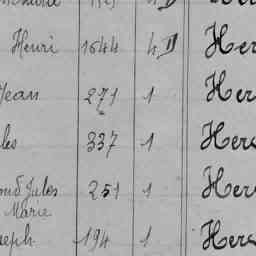 Henri 1644 4 D Her
Jean 271 1 Her
les 337 1 Her
Jules 251 1 Her
Marie
seph 194 1 Her